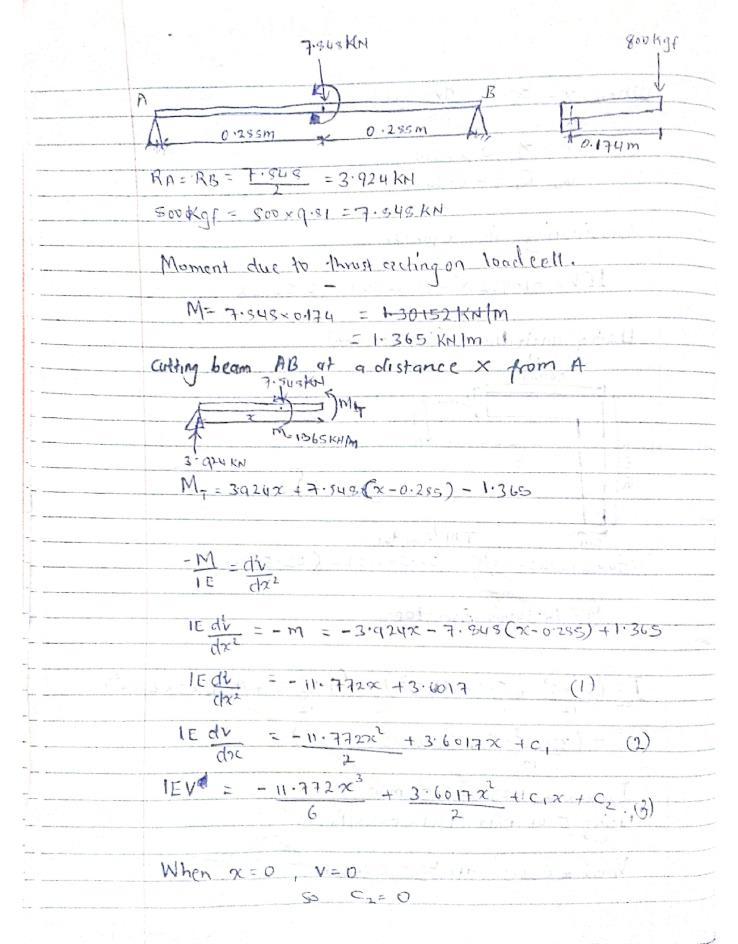 7.848 KN
800kgf
A
B
0.285m
0.285m
0.174m
RA = RB = 7.848/2 = 3.924 KN
800kgf = 800 x 9.81 = 7.848 KN
Moment due to thrust acting on loadcell.
M = 7.848 x 0.174 = 1.30152 KN/m
= 1.365 KN/m
Cutting beam AB at a distance x from A
7.848KN
MT
x
M=1365KN/m
3.924 KN
MT = 3.924x + 7.848(x-0.285) - 1.365
-M/IE = dv/dx²
IE dv/dx² = -m = -3.924x - 7.848(x-0.285) + 1.365
IE dv/dx² = -11.772x + 3.6017 (1)
IE dv/dx = -11.772x²/2 + 3.6017x + C₁ (2)
IEV = -11.772x³/6 + 3.6017x²/2 + C₁x + C₂ ..(3)
When x=0, V=0
so C₂=0